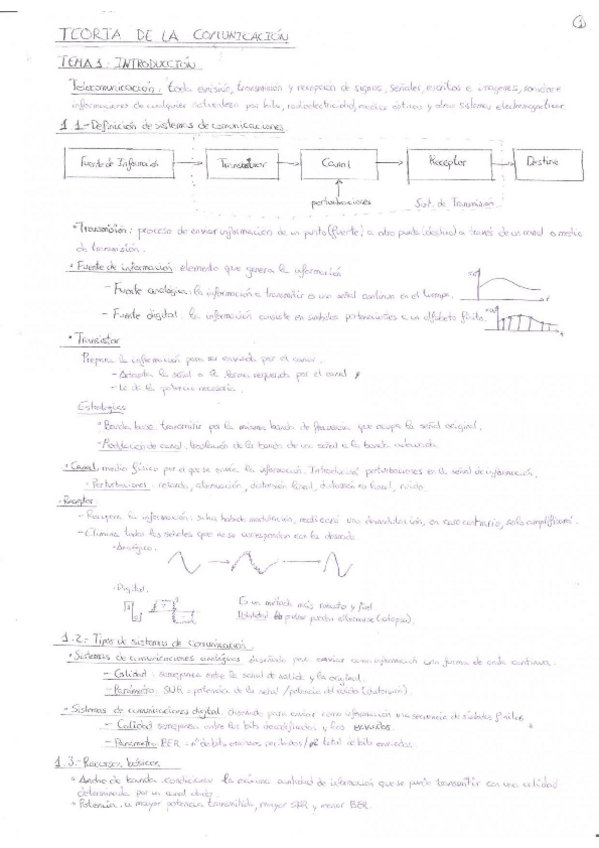 1
TEORIA DE LA COMUNICACIÓN
TEMA 1: INTRODUCCIÓN
Telecomunicación: toda emisión, transmisión y recepción de signos, señales, escritos e imágenes, sonidos e
informaciones de cualquier naturaleza por hilo, radioelectricidad, medios ópticos y otros sistemas electromagnéticos.
1.1.- Definición de sistemas de comunicaciones
Fuente de Información
Transmisor
Canal
Receptor
Destino
perturbaciones
Sist. de Transmisión
• Transmisión: proceso de enviar información de un punto (fuente) a otro punto (destino) a través de un canal o medio
de transmisión.
• Fuente de información elemento que genera la información
- Fuente analógica: la información a transmitir es una señal continua en el tiempo.
- Fuente digital: la información consiste en símbolos pertenecientes a un alfabeto finito.
• Transmisor
Prepara la información para ser enviada por el canal.
- Adapta la señal a la forma requerida por el canal
- Le da la potencia necesaria.
Estrategias
• Banda base: transmitir por la misma banda de frecuencia que ocupa la señal original.
• Modulación de canal: traslación de la banda de una señal a la banda
• Canal: medio físico por el que se envía la información. Introduce perturbaciones en la señal de información.
• Perturbaciones: retardo, atenuación, distorsión lineal, distorsión no lineal, ruido.
• Receptor
- Recupera la información: si ha habido modulación, realizará una demodulación, en caso contrario, solo amplificará.
- Elimina todas las señales que no se corresponden con la deseada
• Analógico:
• Digital:
Es un método más robusto y fiel
1.2.- Tipos de sistemas de comunicación
• Sistemas de comunicaciones analógicos diseñado para enviar como información una forma de onda continua.
- Calidad: semejanza entre la señal de salida y la original.
- Parámetro: SNR = potencia de la señal / potencia del ruido
• Sistemas de comunicaciones digital: diseñado para enviar como información una secuencia de símbolos finitos
- Calidad semejanza entre los bits decodificados y los enviados.
- Parámetro BER = nº de bits erróneos recibidos / nº total de bits enviados.
1.3.- Recursos básicos
• Ancho de banda: condiciona la máxima cantidad de información que se puede transmitir con una calidad
determinada por un canal dado.
• Potencia: a mayor potencia transmitida, mayor SNR y menor BER.